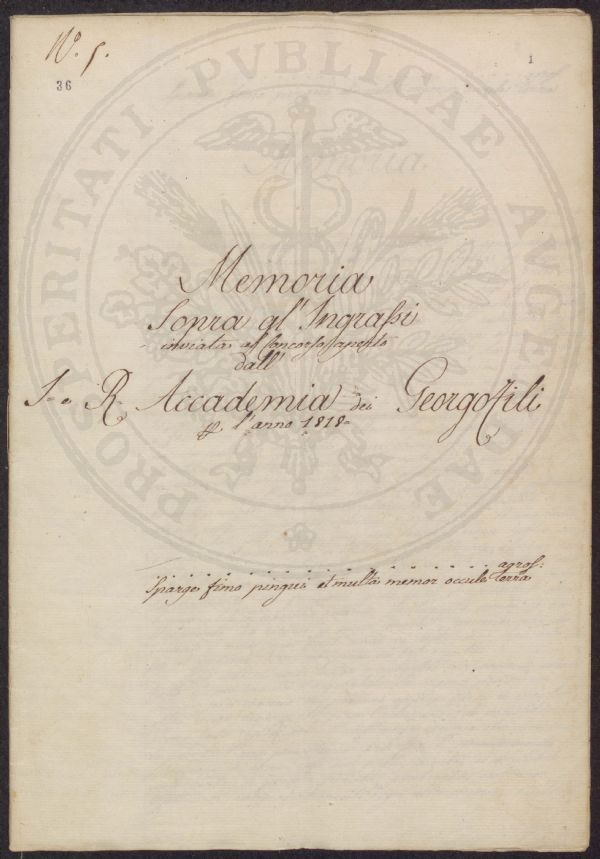 N.º 5.
1
36
PROSPERITATI PVBLICAE AVGENDAE
Memoria
Sopra gl'Ingrassi
inviata al Concorso aperto
dall'
I. e R. Accademia dei Georgofili
p. l'anno 1818.
agros:
Sparge fimo pingui et multa memor occule terra